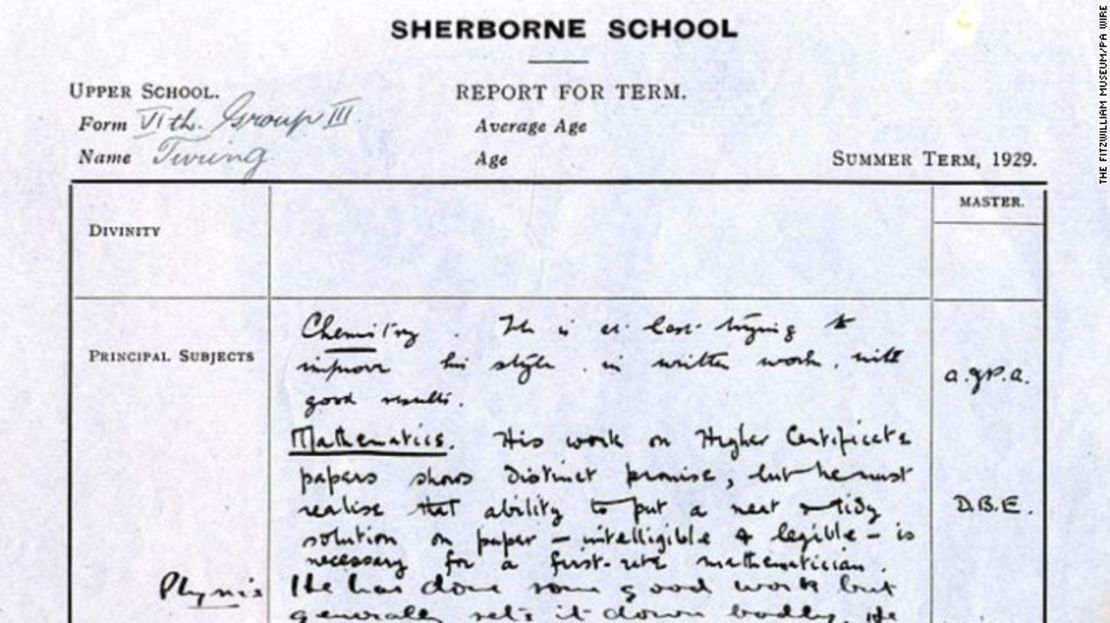 SHERBORNE SCHOOL
UPPER SCHOOL.
REPORT FOR TERM.
Form VIth. Group III.
Average Age
Name Turing
Age
SUMMER TERM, 1929.
MASTER.
DIVINITY
PRINCIPAL SUBJECTS
Chemistry. He is at last trying to
improve his style in written work, with
good results.
a.J.P.a.
Mathematics. His work on Higher Certificate
papers shows distinct promise, but he must
realise that ability to put a neat & tidy
solution on paper – intelligible & legible – is
necessary for a first-rate mathematician.
D.B.E.
Physics He has done some good work but
generally sets it down badly. He
THE FITZWILLIAM MUSEUM/PA WIRE